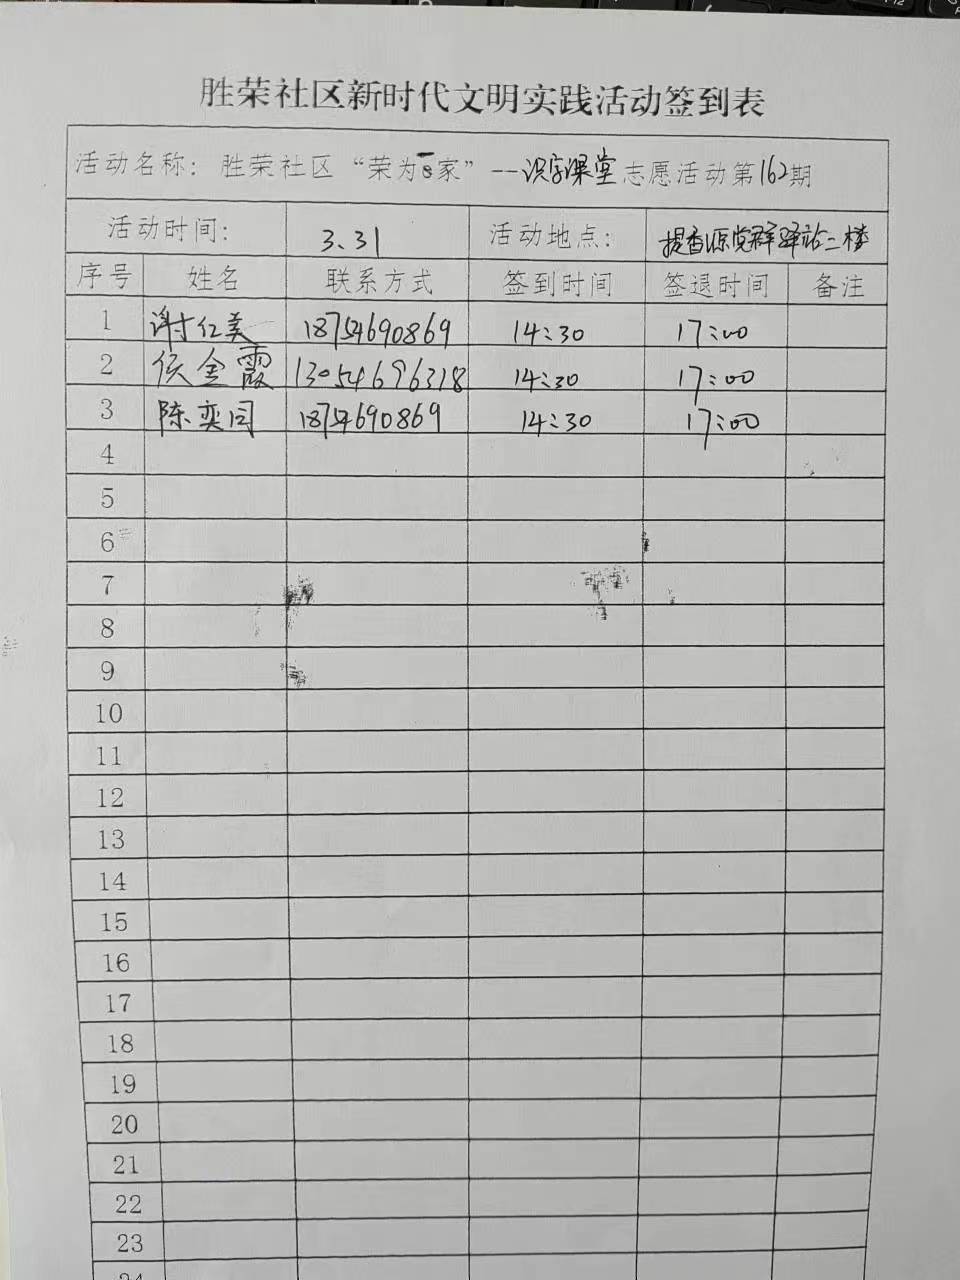 胜荣社区新时代文明实践活动签到表
活动名称：胜荣社区“荣为一家”--识字课堂志愿活动第162期
活动时间： 3.31 活动地点： 提香源党群驿站二楼
序号 姓名 联系方式 签到时间 签退时间 备注
1 谢红美 18754690869 14:30 17:00
2 侯金霞 13054696318 14:30 17:00
3 陈奕同 18754690869 14:30 17:00
4
5
6
7
8
9
10
11
12
13
14
15
16
17
18
19
20
21
22
23
24